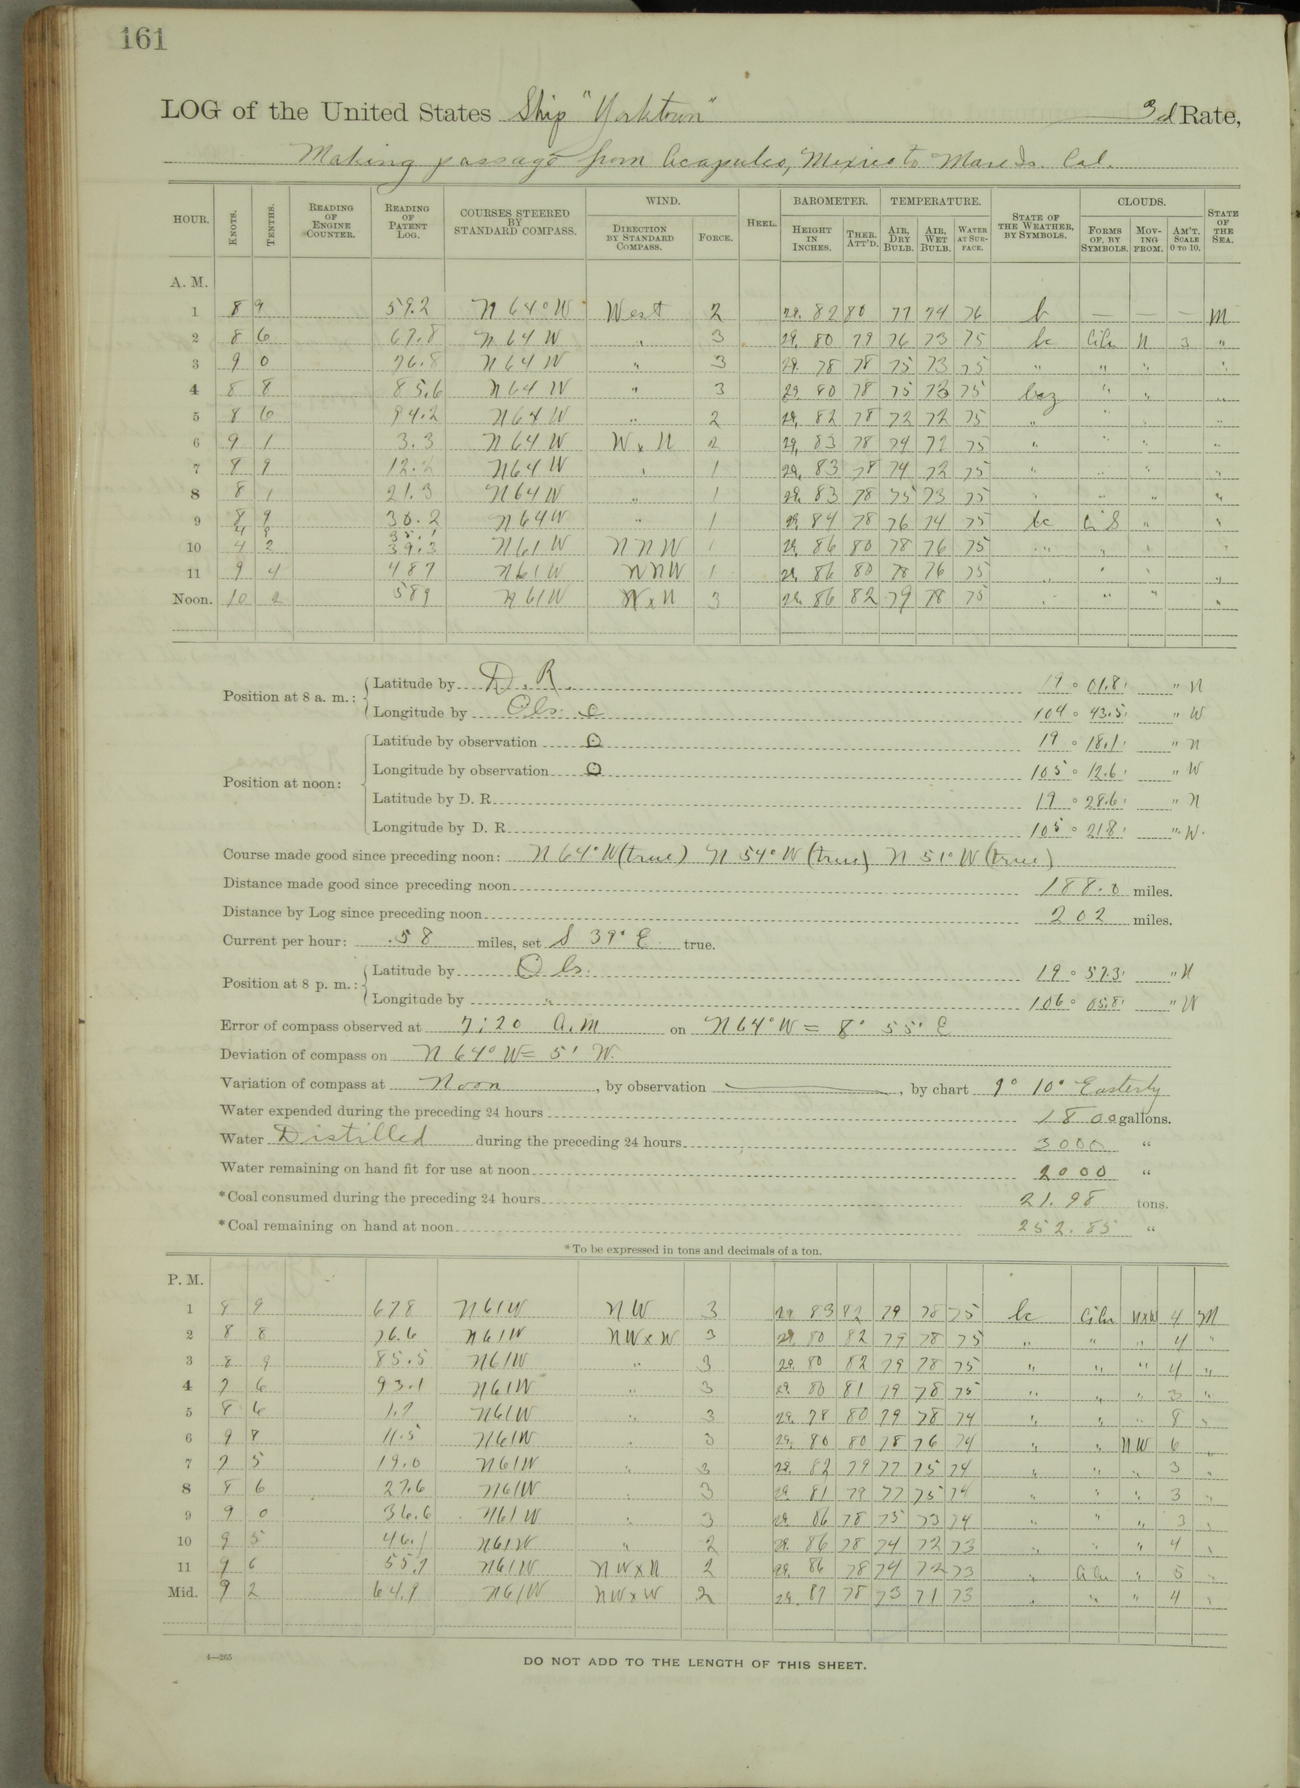 161
LOG of the United States Ship "Yorktown" 3d Rate,
Making passage from Acapulco, Mexico to Mare Is. Cal.
HOUR. KNOTS. TENTHS. READING OF ENGINE COUNTER. READING OF PATENT LOG. COURSES STEERED BY STANDARD COMPASS. WIND. DIRECTION BY STANDARD COMPASS. FORCE. HEEL. BAROMETER. HEIGHT IN INCHES. THER. ATT'D. TEMPERATURE. AIR, DRY BULB. AIR, WET BULB. WATER AT SURFACE. STATE OF THE WEATHER, BY SYMBOLS. CLOUDS. FORMS OF, BY SYMBOLS. MOVING FROM. AM'T. SCALE 0 TO 10. STATE OF THE SEA.
A. M.
1 8 9 59.2 N 64° W West 2 29. 82 80 77 74 76 b — — — M
2 8 6 67.8 N 64 W " 3 29. 80 79 76 73 75 bc CiCu N 3 "
3 9 0 76.8 N 64 W " 3 29. 78 78 75 73 75 " " " "
4 8 8 85.6 N 64 W " 3 29. 80 78 75 73 75 bcz " " "
5 8 6 94.2 N 64 W " 2 29. 82 78 72 72 75 " " "
6 9 1 3.3 N 64 W W x N 2 29. 83 78 74 72 75 " " " "
7 8 9 12.2 N 64 W " 1 29. 83 78 74 72 75 " " " "
8 8 1 21.3 N 64 W " 1 29. 83 78 75 73 75 " " " "
9 8 9 30.2 N 64 W " 1 29. 84 78 76 74 75 bc Ci S " "
4 9 35.1
10 4 2 39.3 N 61 W N N W 1 29. 86 80 78 76 75 " " " "
11 9 4 487 N 61 W NNW 1 29. 86 80 78 76 75 " " " "
Noon. 10 2 589 N 61 W W x N 3 29. 86 82 79 78 75 " " " "
Position at 8 a. m.: Latitude by D. R. 19 ° 01.8' " N
Longitude by Obs. 104 ° 43.5' " W
Position at noon: Latitude by observation ⊙ 19 ° 18.1' " N
Longitude by observation ⊙ 105 ° 12.6' " W
Latitude by D. R. 19 ° 28.6' " N
Longitude by D. R. 105 ° 21.8' " W.
Course made good since preceding noon: N 64° W (true) N 54° W (true) N 51° W (true)
Distance made good since preceding noon 188.0 miles.
Distance by Log since preceding noon 202 miles.
Current per hour: .58 miles, set S 39° E true.
Position at 8 p. m.: Latitude by Obs. 19 ° 57.3' " N
Longitude by " 106 ° 05.8' " W
Error of compass observed at 7:20 A.M on N 64° W = 8° 55' E
Deviation of compass on N 64° W = 5' W.
Variation of compass at Noon, by observation ———, by chart 9° 10' Easterly
Water expended during the preceding 24 hours 1800 gallons.
Water Distilled during the preceding 24 hours 3000 "
Water remaining on hand fit for use at noon 2000 "
*Coal consumed during the preceding 24 hours 21.98 tons.
*Coal remaining on hand at noon 252.85 "
*To be expressed in tons and decimals of a ton.
P. M.
1 8 9 678 N 61 W NW 3 29. 83 82 79 78 75 bc CiCu NxW 4 M
2 8 8 76.6 N 61 W NWxW 3 29. 80 82 79 78 75 " " " 4 "
3 8 9 85.5 N 61 W " 3 29. 80 82 79 78 75 " " " 4 "
4 7 6 93.1 N 61 W " 3 29. 80 81 79 78 75 " " " 3 "
5 8 6 1.7 N 61 W " 3 29. 78 80 79 78 74 " " " 8 "
6 9 8 11.5 N 61 W " 3 29. 80 80 78 76 74 " " NW 6 "
7 7 5 19.0 N 61 W " 3 29. 82 79 77 75 74 " " " 3 "
8 8 6 27.6 N 61 W " 3 29. 81 79 77 75 74 " " " 3 "
9 9 0 36.6 N 61 W " 3 29. 86 78 75 73 74 " " " 3 "
10 9 5 46.1 N 61 W " 2 29. 86 78 74 72 73 " " " 4 "
11 9 6 55.7 N 61 W NWxN 2 29. 86 78 74 72 73 " CiCu " 5 "
Mid. 9 2 64.9 N 61 W NWxW 2 29. 87 78 73 71 73 " " " 4 "
4—265
DO NOT ADD TO THE LENGTH OF THIS SHEET.